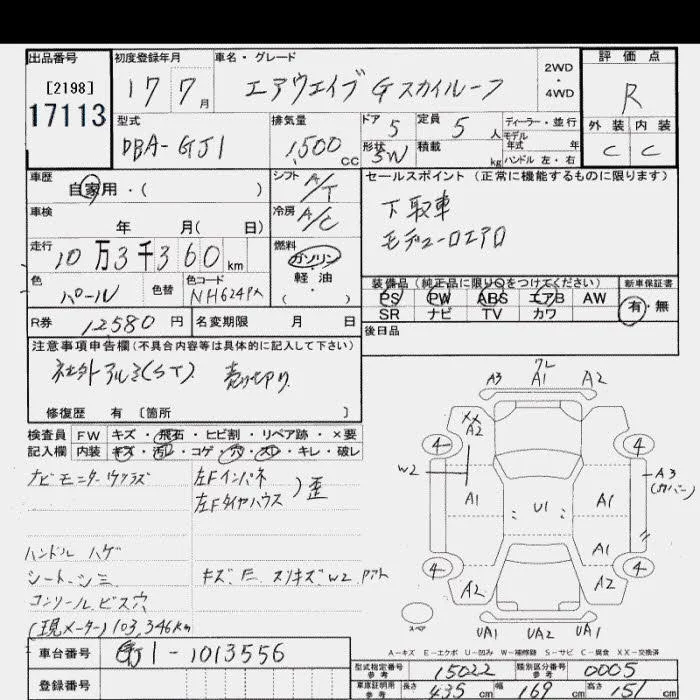 出品番号 初度登録年月 車名・グレード 2WD・4WD 評価点
[2198]
17113
17 7月 エアウエイブ Gスカイルーフ R
型式 排気量 ドア 定員 ディーラー・並行 外装 内装
DBA-GJ1 1,500cc 5 5人 モデル年式 年 C C
形状 5W 積載 kg ハンドル 左・右
車歴 シフト A/T セールスポイント (正常に機能するものに限ります)
自家用・( )
下取車
車検 冷房 A/C
年 月( 日)
モデューロエアロ
走行 燃料
10万3千360km ガソリン・軽油・( )
色 色替 色コード 装備品 (純正品に限り○をつけてください) 新車保証書
パール NH624PX PS PW ABS エアB AW 有・無
SR ナビ TV カワ
R券 12580円 名変期限 月 日 後日品
注意事項申告欄(不具合内容等は具体的に記入して下さい)
社外アルミ(ST).
修復歴 有 [箇所 ]
検査員 FW キズ・飛石・ヒビ割・リペア跡・×要
記入欄 内装 キズ・汚レ・コゲ・穴・スレ・キレ・破レ
ナビモニターウツラズ 左Fインパネ
左Fタイヤハウス )歪
ハンドル ハゲ
シート シミ
コンソール ビス穴
(現メーター)103,346km
車台番号 GJ1-1013556
登録番号
A3 A1 A2
XX A2
4 4
W2 A3 (カバー)
A1 U1 A1
A1
4 4
A2 A2
スペア UA1 UA2 UA1
A-キズ E-エクボ U-凹み W-補修跡 S-サビ C-腐食 XX-交換済
型式指定番号 参考 15022 類別区分番号 参考 0005
車庫証明用 参考 長さ 435cm 幅 169cm 高さ 151cm